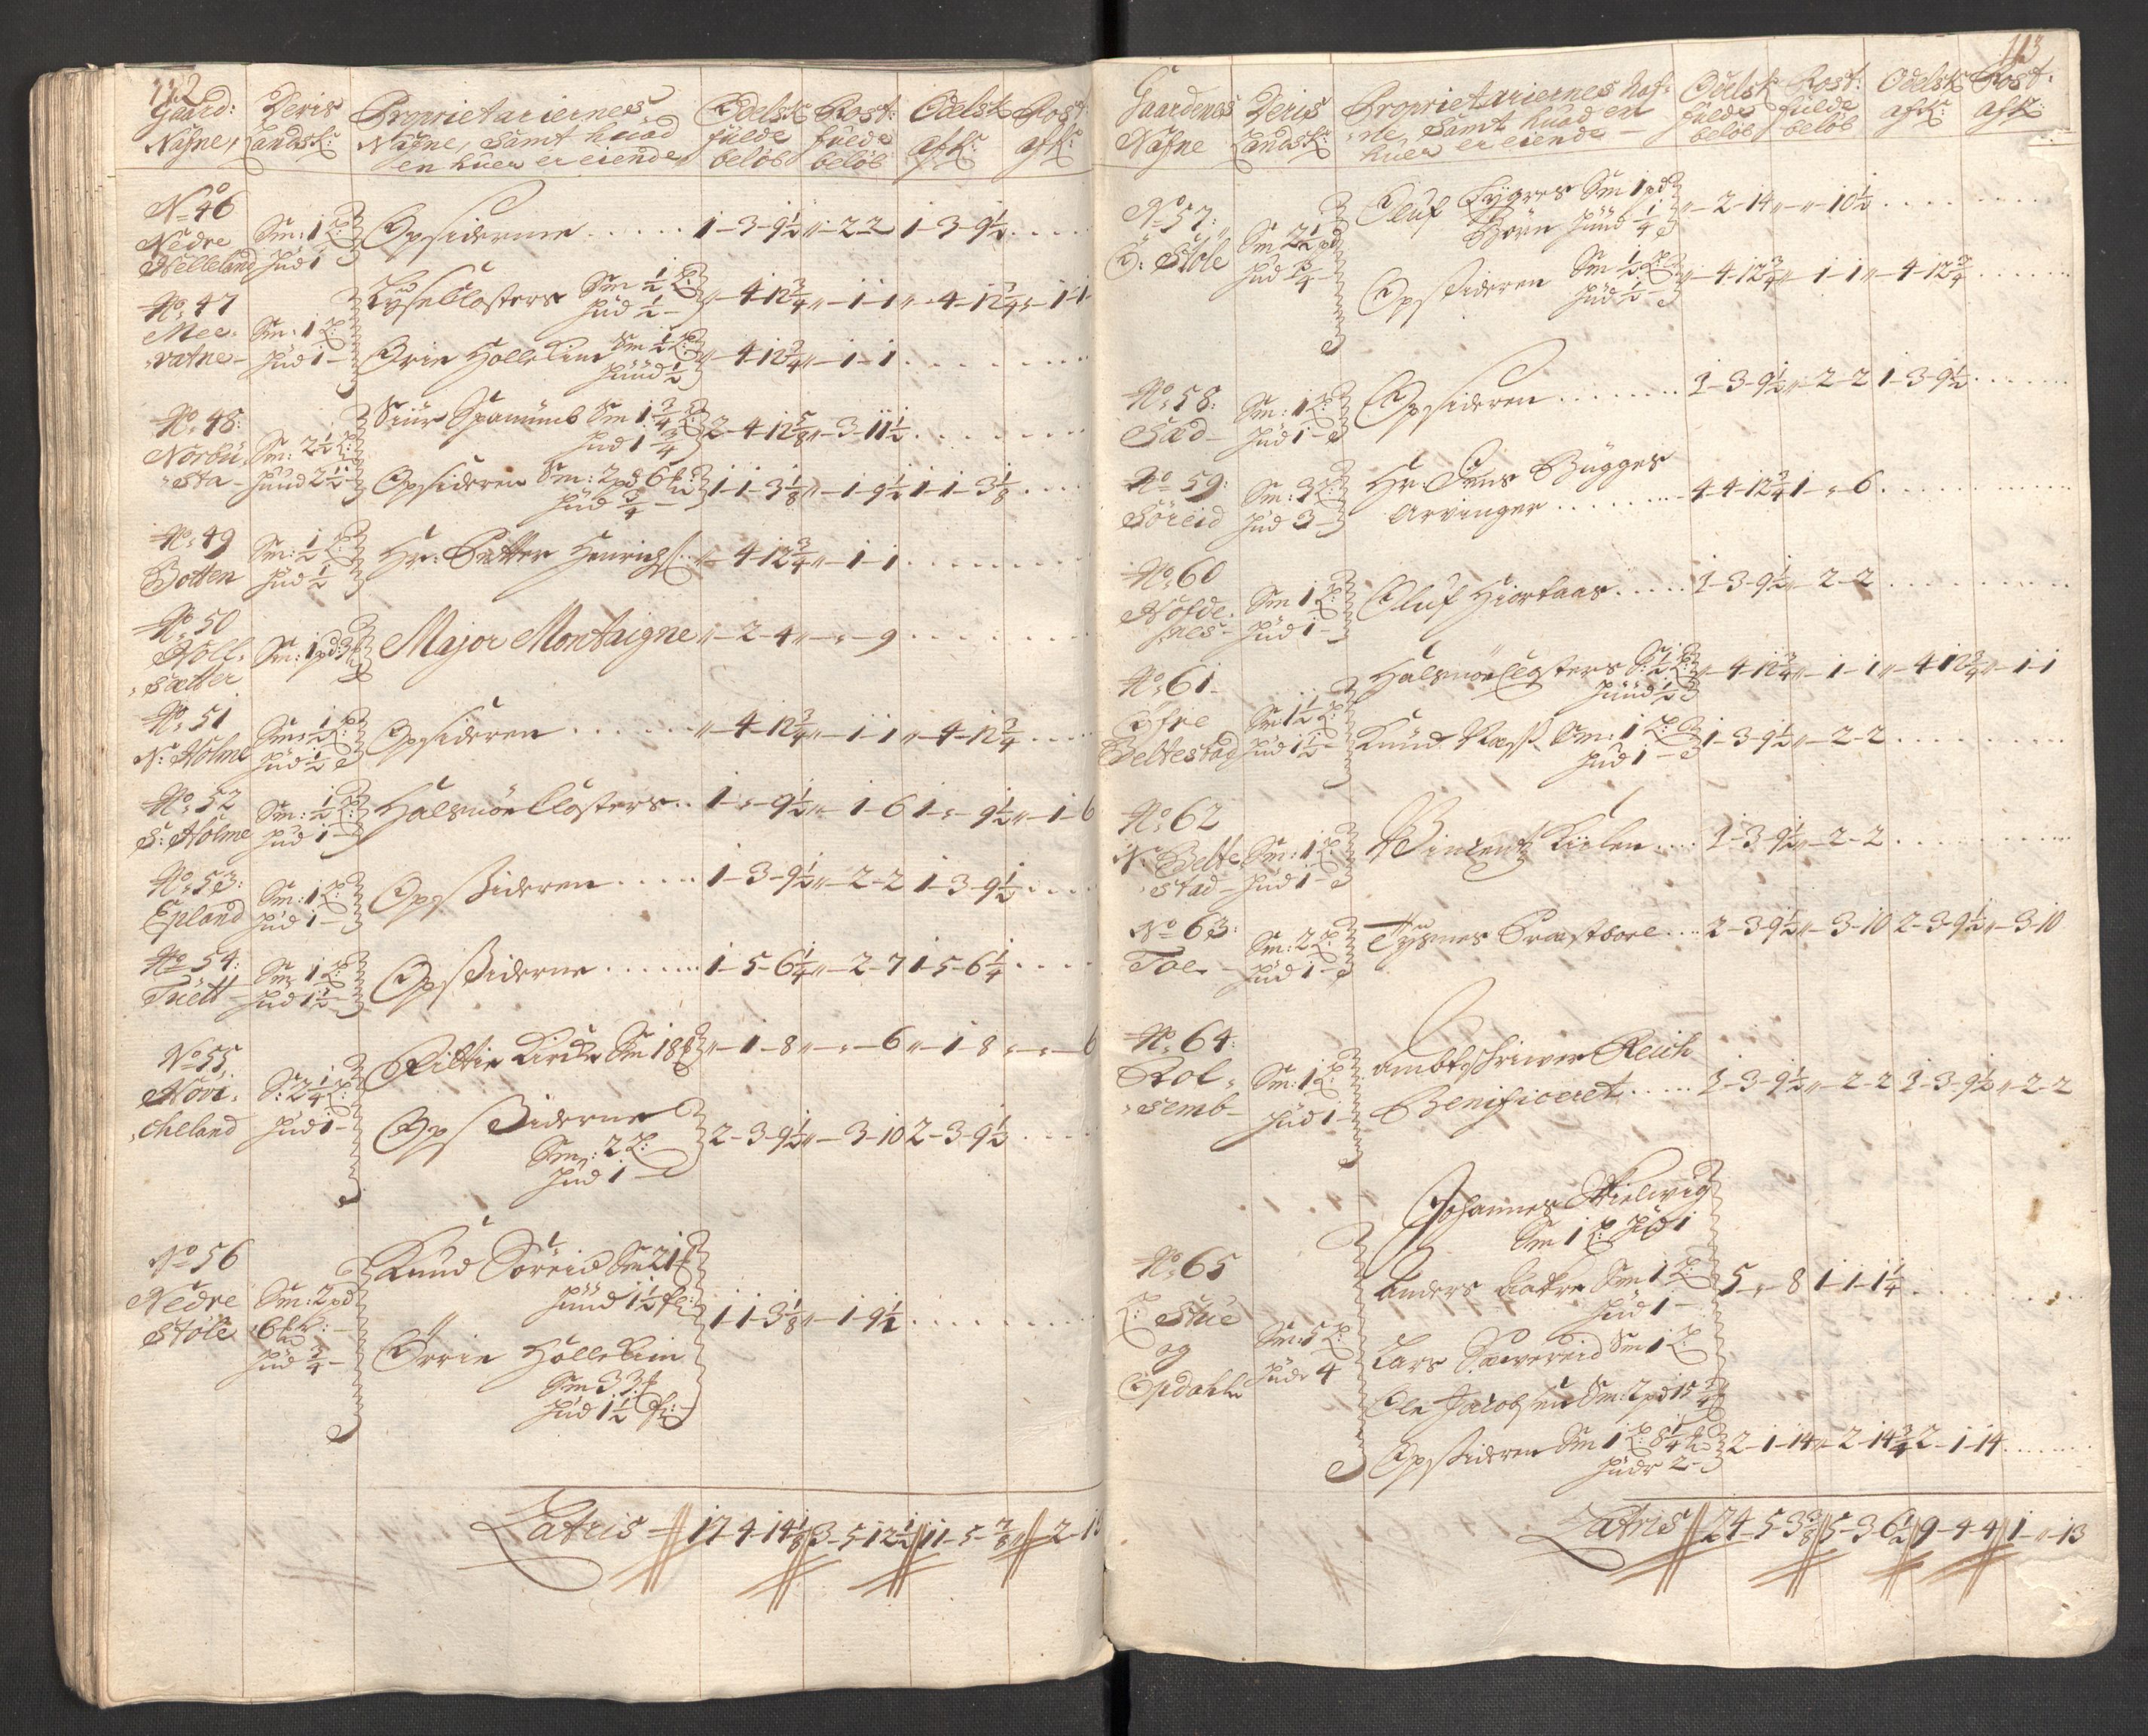 112
Gaard: Deris Proprietariernes Odelsk Rost: Odelsk Rost:
Nafne, Landsk: Nafne, Samt huad fulde fulde afk: afk:
en huer er eiende beløb beløb
No 46
Nedre Sm: 1 L: Opsiderne 1-3-9½ „-2-2 1-3-9½
Nelleland Hud 1
No 47 Lyseclosters Sm ½ L: „-4-12¾ „-1-1 „-4-12¾ „-1-1
Mee- Sm: 1 L: Hud ½
vatne- Hud 1- Brin Hollekim Sm ½ L: „-4-12¾ „-1-1
Huud ½
No 48: Siur Spanumb Sm 1¾ L: 2-4-12⅝ „-3-11½
Norbu- Sm: 2½ L: Hud 1¾
sta- Huud 2½ Opsideren Sm: 2 pd 6 1-1-3⅛ „-1-9½ 1-1-3⅛
Hud ¾
No 49 Sm: ½ L: Hr: Petter Henrichs: „-4-12¾ „-1-1
Botten Hud ½
No 50
Holl- Sm: 1 pd: 3 Major Montaigne „-2-4 „-„-9
sætter
No 51 Sm: ½ L: Opsideren „-4-12¾ „-1-1 „-4-12¾
N: Holme Hud ½
No 52 Sm: ½ L: Halsnöe Closters 1-„-9½ „-1-6 1-„-9½ „-1-6
S: Holme Hud 1-
No 53: Sm: 1 L: Opsideren 1-3-9½ „-2-2 1-3-9½
Epland Hud 1-
No 54: Sm 1 L: Opsiderne 1-5-6¼ „-2-7 1-5-6¼
Tvett Hud 1½
No 55 Fittie Kircke Sm 18 „-1-8 „-„-6 „-1-8 „-„-6
Hovi- S: 2¼ L:
cheland Hud 1- Opsiderne 2-3-9½ „-3-10 2-3-9½
Sm: 2 L:
Hud 1
No 56 Knud Söreid Sm 21
Nedre Sm: 2 pd Huud 1½
Støle 6 1-1-3⅛ „-1-9½
Hud ¾ Orrin Hollekim
Sm 33
Hud 1½
Latris 17-4-14⅛ 3-5-12½ 11-5-⅞ „-2-1
113
Gaardenes Deris Proprietariernes Naf- Odelsk Rost: Odelsk Rost:
Nafne Landsk: ne, Samt huad en fulde fulde afk: afk:
huer er eiende beløb beløb
No 57: Oluf Sm 1 pd „-2-14 „-„-10½
Ö: Støle Sm 2½ pd Börn Huud ¼
Hud ¾ Opsideren Sm ½ L: „-4-12¾ „-1-1 „-4-12¾
Hud ½
No 58: Sm: 1 L: Opsideren 1-3-9½ „-2-2 1-3-9½
Sæd- Hud 1-
No 59: Sm: 3 L: Hr: Jens Bugges
Söreid Hud 3- Arvinger 4-4-12¾ 1-„-6
No 60 Sm 1 L: Oluf Hiortaas 1-3-9½ „-2-2
Nofde-
nes- Hud 1-
No 61- Halsnöe Closters S: ½ L: „-4-12¾ „-1-1 „-4-12¾ „-1-1
Huud ½
Øfre Sm 1½ L: Knud Næss Sm: 1 L: 1-3-9½ „-2-2
Beltestad Hud 1½ Hud 1
No 62
N: Belte- Sm: 1 L: Vincentz Kiilen 1-3-9½ „-2-2
stad- Hud 1-
No 63: Sm: 2 L: Tysnes Præstbore 2-3-9½ „-3-10 2-3-9½ „-3-10
Toe- Hud 1-
No 64: ambtschriver Reich
Rol- Sm: 1 L: Benificeret 1-3-9½ „-2-2 1-3-9½ „-2-2
semb- Hud 1-
Johannes Mielvig
Sm 1 L: Hud 1
No 65 Anders Aakre Sm 1 L: 5-„-8 1-1-1¼
L: Stue Hud 1-
og Sm: 5 L: Lars Sævereid Sm 1 L:
Opdahle Hude 4 Ole Jacobsen Sm: 2 pd 15¾
Opsideren Sm 1 L: 8¼ 2-1-14 „-2-14¾ 2-1-14
Hude 2-
Latris 24-5-3⅜ 5-3-6½ 9-4-4 1-„-13